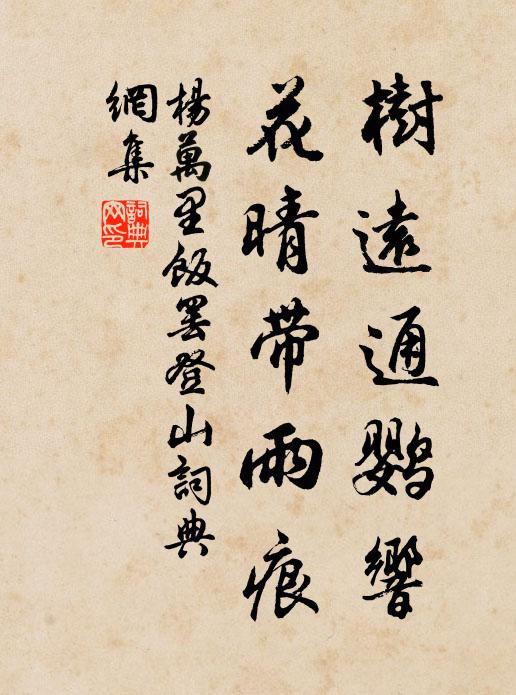 樹遠通鸚響
花晴帶雨痕
楊萬里飯罷登山詞典
網集
詞典
网印